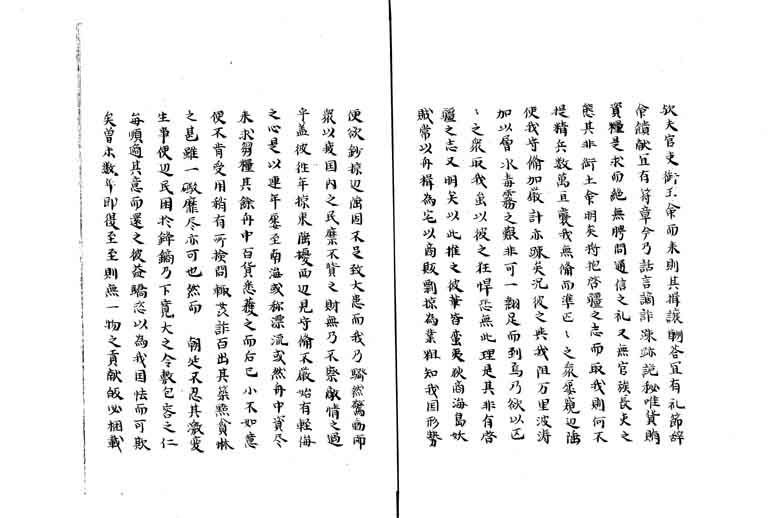 欤夫官吏銜王命而来則其揖讓酬答宜有礼節辞
命饋献宜有符章今乃詁言謫詐深跡詭秘唯貨賄
資糧是求而絶無聘問通信之礼又無官族長吏之
態其非銜土命明矣将抱啓疆之志而取我則何不
提精兵数萬亘襲我無備而準区〻之衆屡窺辺陲
使我守備加厳計亦踈矣况彼之與我阻万里波涛
加以層氷毒霧之艱非可一翻足而到焉乃欲以区
〻之衆取我虽以彼之狂悍恐無此理是其非有啓
疆之志又明矣以此推之彼輩皆蛮夷狄商海島妖
賊常以舟楫為宅以商販剽掠為業粗知我国形勢
便欲鈔掠辺陲固不足致大患而我乃騒然驚動師
衆以疲国内之民糜不貲之財無乃不察敵情之過
乎盖彼往年掠東陲擾西辺見守備不厳始有軽侮
之心是以連年屡至南海或称漂流或然舟中資尽
来求芻糧其餘舟中百貨悉護之而后已小不如意
便不肯受用稍有所撿問輙芟詐百出其桀黠貪惏
之甚雖一礮靡尽亦可也然而　朝廷不忍其激変
生事使辺民困於鋒鏑乃下寛大之令敷包容之仁
毎順適其意而還之彼益驕恣以為我国怯而可欺
矣曽未数年即復至至則無一物之貢献皈必梱載